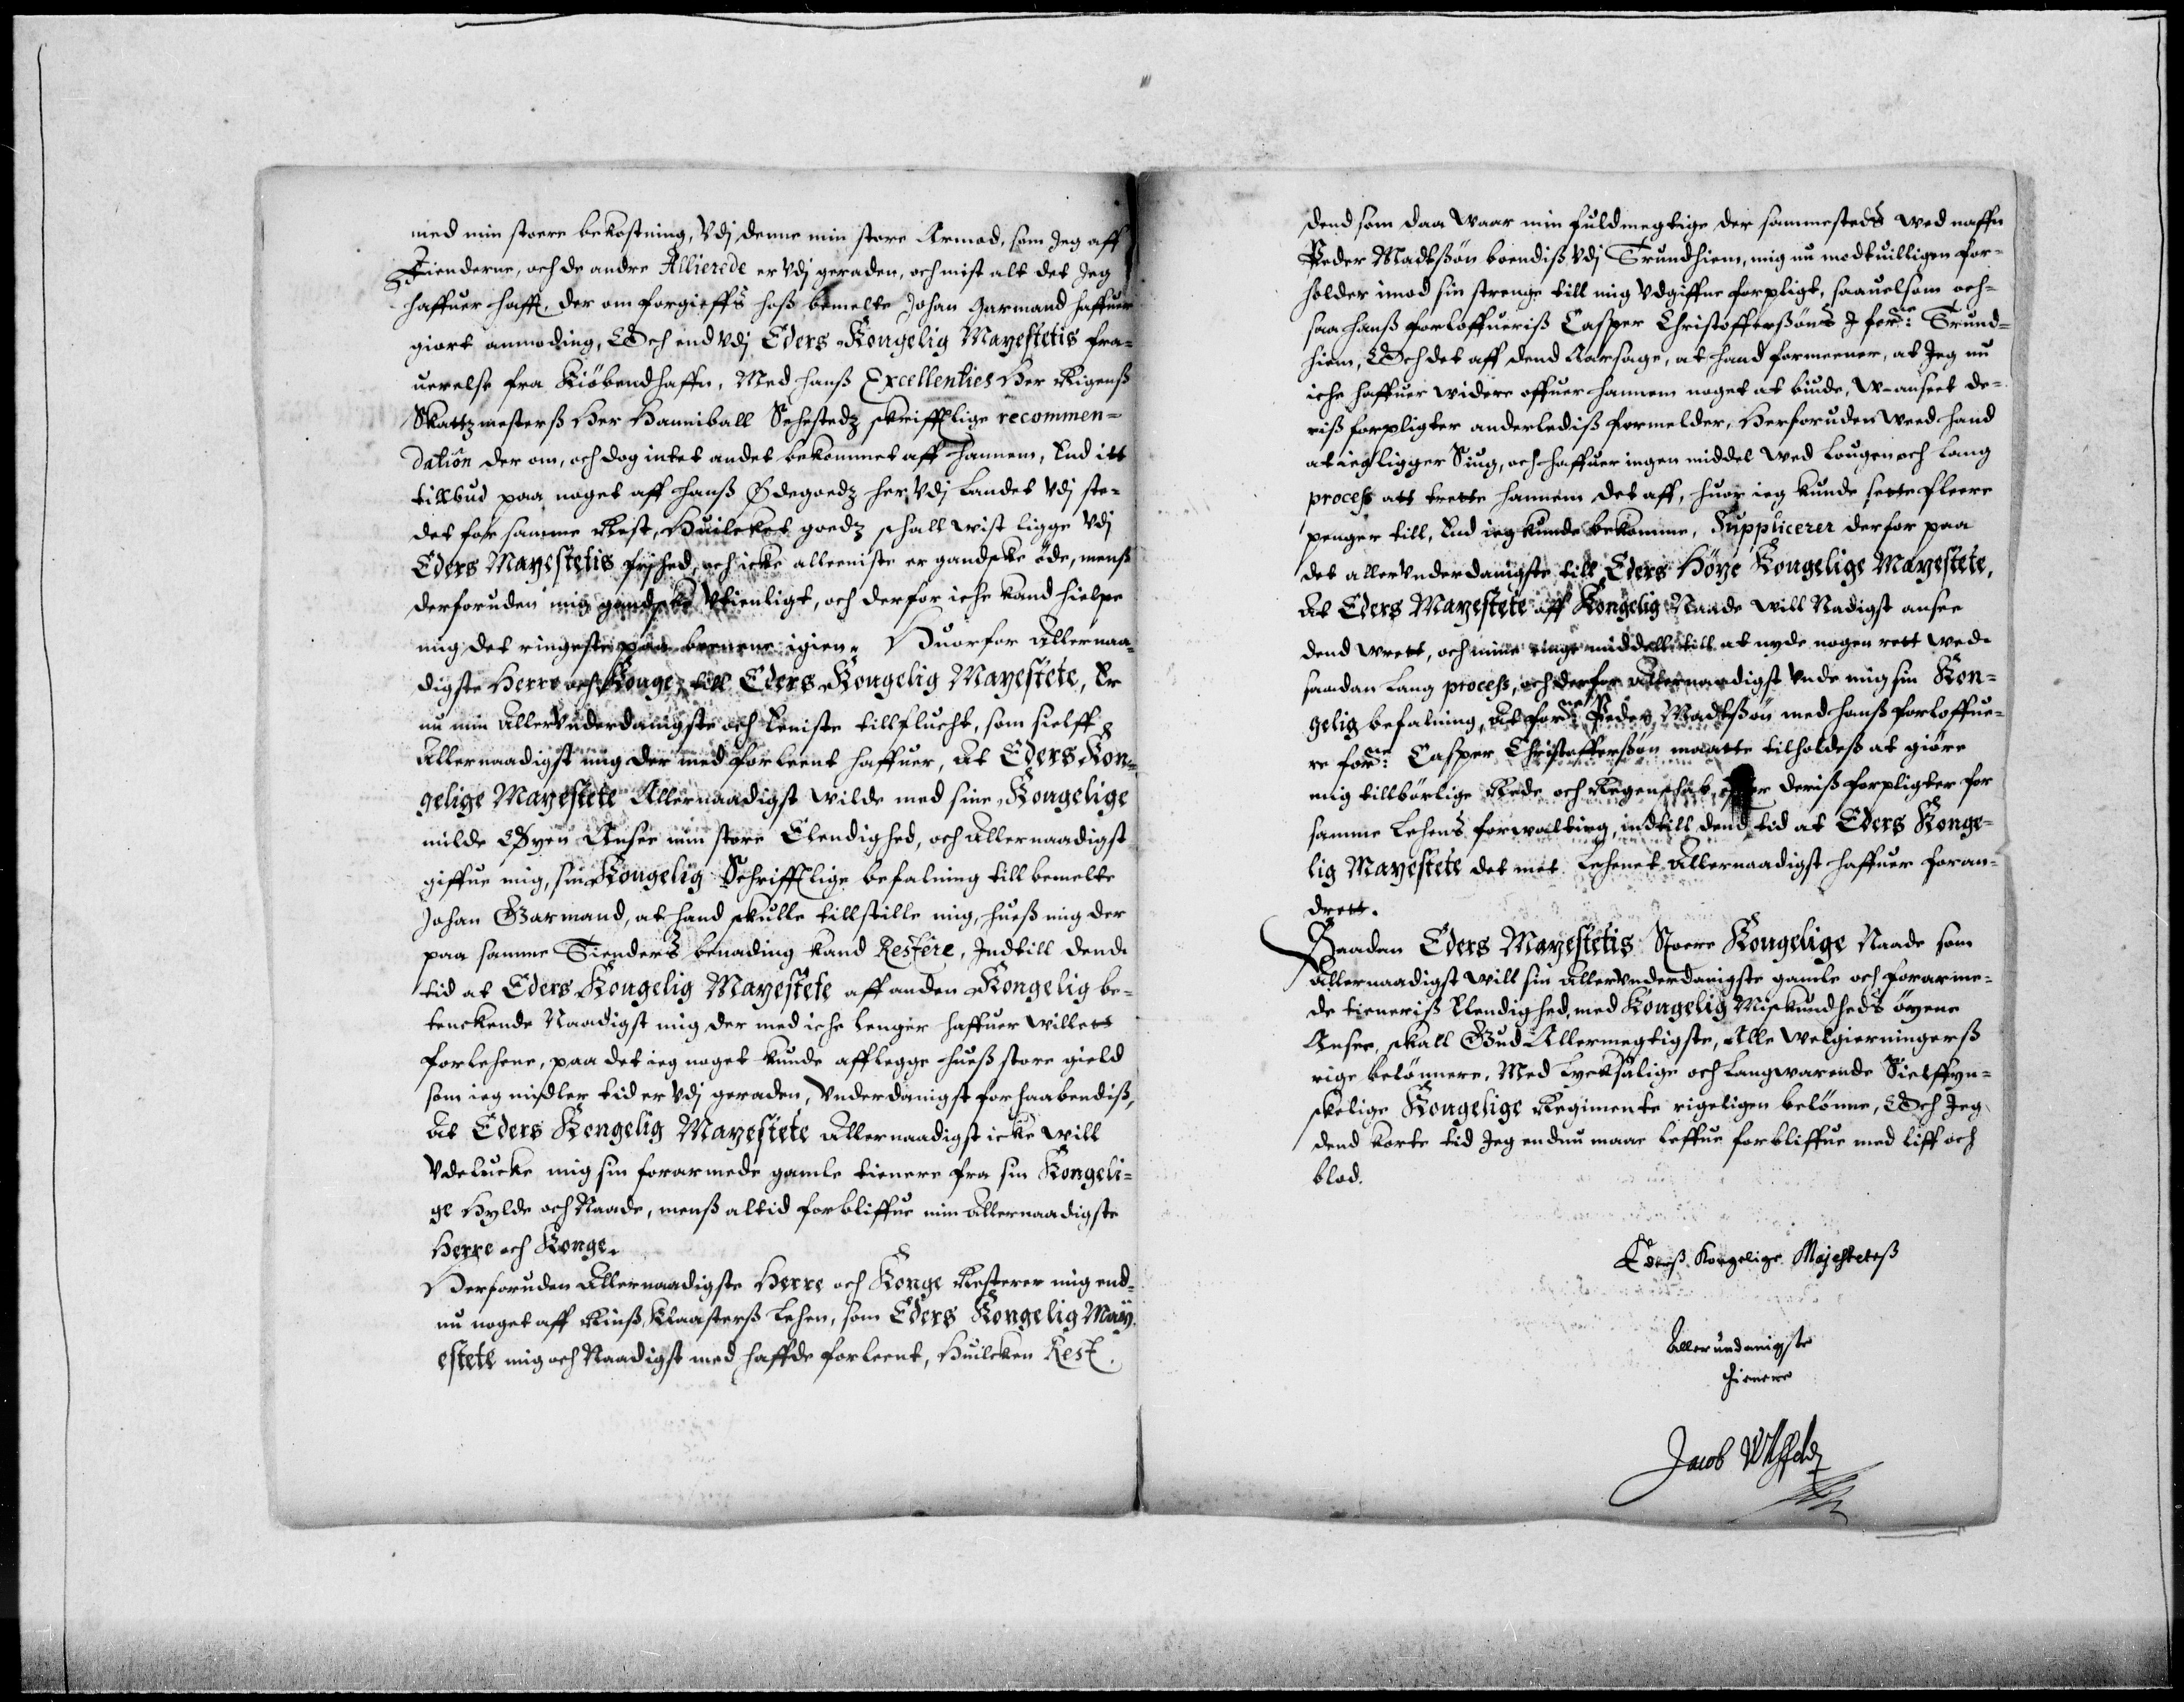 med min stoere bekostning, Vdj denne min store Armod, som Jeg aff
Fienderne, och de andre Allierede er Vdj geraden, och mist alt det Jeg
haffuer hafft, der om forgieffs hoß bemelte Johan Garmand haffuer
giort anmoding, Och end Vdj Eders Kongelig Mayestetis fra¬
uerelse fra Kiöbendhaffn, Med hanß Excellenties Her Rigenß
Skattzmesterß Her Hanniball Sehestedz skrifftlige recommen=
dation der om, och dog intet andet bekommet aff hannem, End itt
tilbud paa noget aff hanß Ödegoedz her Vdj Landet Vdj ste¬
det for samme Rest, Huilcket goedz schall wist ligge Vdj
Eders Mayestetis frihed, och icke alleeniste er gandske öde, menß
derforuden mig gandske Vtienligt, och derfor iche kand hielpe
mig det ringeste paa beenene igien. Huorfor Allernaa¬
digste Herre och Konge, till Eders Kongelig Mayestete, Er
nu min Allervnderdanigste och Eeniste tillflucht, som sielff
Allernaadigst mig der med forleent haffuer, At Eders Kon¬
gelige Mayestete Allernaadigst wilde med sine Kongelige
milde Øyen Ansee min store Elendighed, och Allernaadigst
giffue mig, sin Kongelig Schrifftlige befalning till bemelte
Johan Garmand, at hand skulle tillstille mig, hueß mig der
paa samme Tienders benading kand Restere, Indtill dend
tid at Eders Kongelig Mayestete aff anden Kongelig be¬
tenckende Naadigst mig der med iche lenger haffuer willett
forlehene, paa det ieg noget kunde afflegge hueß store gield
som ieg midler tid er Vdj geraden, Vnderdanigst forhaabendiß,
At Eders Kongelig Mayestete Allernaadigst icke will
Vdelucke mig sin forarmede gamle tienere fra sin Kongeli¬
ge Hylde och Naade, menß altid forbliffue min Allernaadigste
Herre och Konge.
Herforuden Allernaadigste Herre och Konge Resterer mig end¬
nu noget aff Rinß Klaasterß Lehen, som Eders Kongelig May¬
estete mig och Naadigst med haffde forleent, Huilcken Rest
dend som daa waar min fuldmegtige der sammesteds wed naffn
Peder Madtßön boendiß Vdj Trundhiem, mig nu modtuilligen for¬
holder imod sin strenge till mig Vdgiffne forpligt, saauelsom och¬
saa hanß forloffueriß Casper Christofferßöns J forne: Trund¬
hiem, Och det aff dend Aarsage, at hand formeener, at Jeg nu
iche haffuer widere offuer hannem noget at biude, W-anseet de¬
riß forpligter anderlediß formelder, Herforuden weed hand
at ieg ligger Siug, och haffuer ingen middel wed Lougen och Lang
process att trette hannem det aff, huor ieg kunde sette fleere
penger till, End ieg kunde bekomme, Supplicerer derfor paa
det allervnderdanigste till Eders Höye Kongelige Mayestete,
At Eders Mayestete aff Kongelig Naade will Nadigst ansee
dend wrett, och mine ringe middell till at nyde nogen rett wed
saadan Lang process, och derfor Allernaadigst Vnde mig sin Kon¬
gelig befalning, At forne: Peder Madtßön med hanß forloffue¬
re forne: Casper Christofferßön maatte tilholdeß at giöre
mig tillbörlige Rede och Regenschab, effter deriß forpligter for
samme Lehens forwaltirg, indtill dend tid at Eders Konge¬
lig Mayestete det met Lehenet Allernaadigst haffuer foran¬
drett.
Saadan Eders Mayestetis Stoere Kongelige Naade som
Allernaadigst will sin Allervnderdanigste gamle och forarme¬
de tieneriß Elendighed, med Kongelig Miskundheds öyene
Ansee, skall Gud Allermegtigste, Alle welgierningerß
rige belönnere, Med Lycksalige och Langwarende Sielffyn¬
skelige Kongelige Regimente rigeligen belönne, Och Jeg
dend korte tid Jeg endnu maae leffue forbliffue med liff och
blod.
Ederß Kongelige Majesteteß
Allerundanigste
thienere
Jacob Vlfeldz